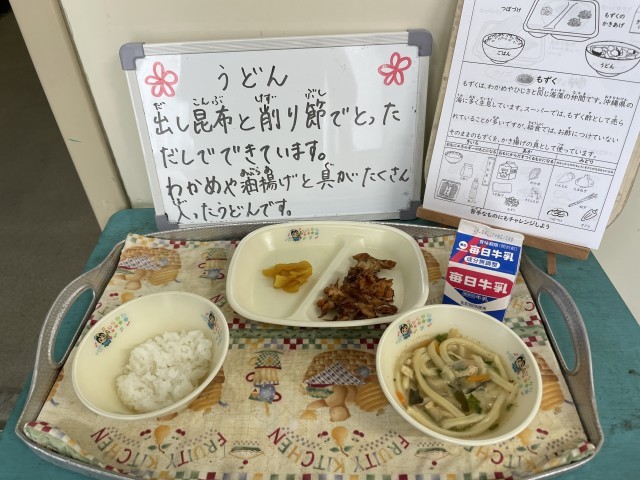 うどん
出し昆布と削り節でとった
だしでできています。
わかめや油揚げと具がたくさん
入ったうどんです。
つぼづけ
もずくの
かきあげ
ごはん
うどん
もずく
もずくは、わかめやひじきと同じ海藻の仲間です。沖縄県の
海に多く生息しています。スーパーでは、もずく酢として売
られていることが多いですが、給食では、お酢につけていない
そのままのもずくを、かき揚げの具として使っています。
苦手なものにもチャレンジしよう
毎日牛乳
成分無調整
毎日牛乳
FRUITY KITCHEN